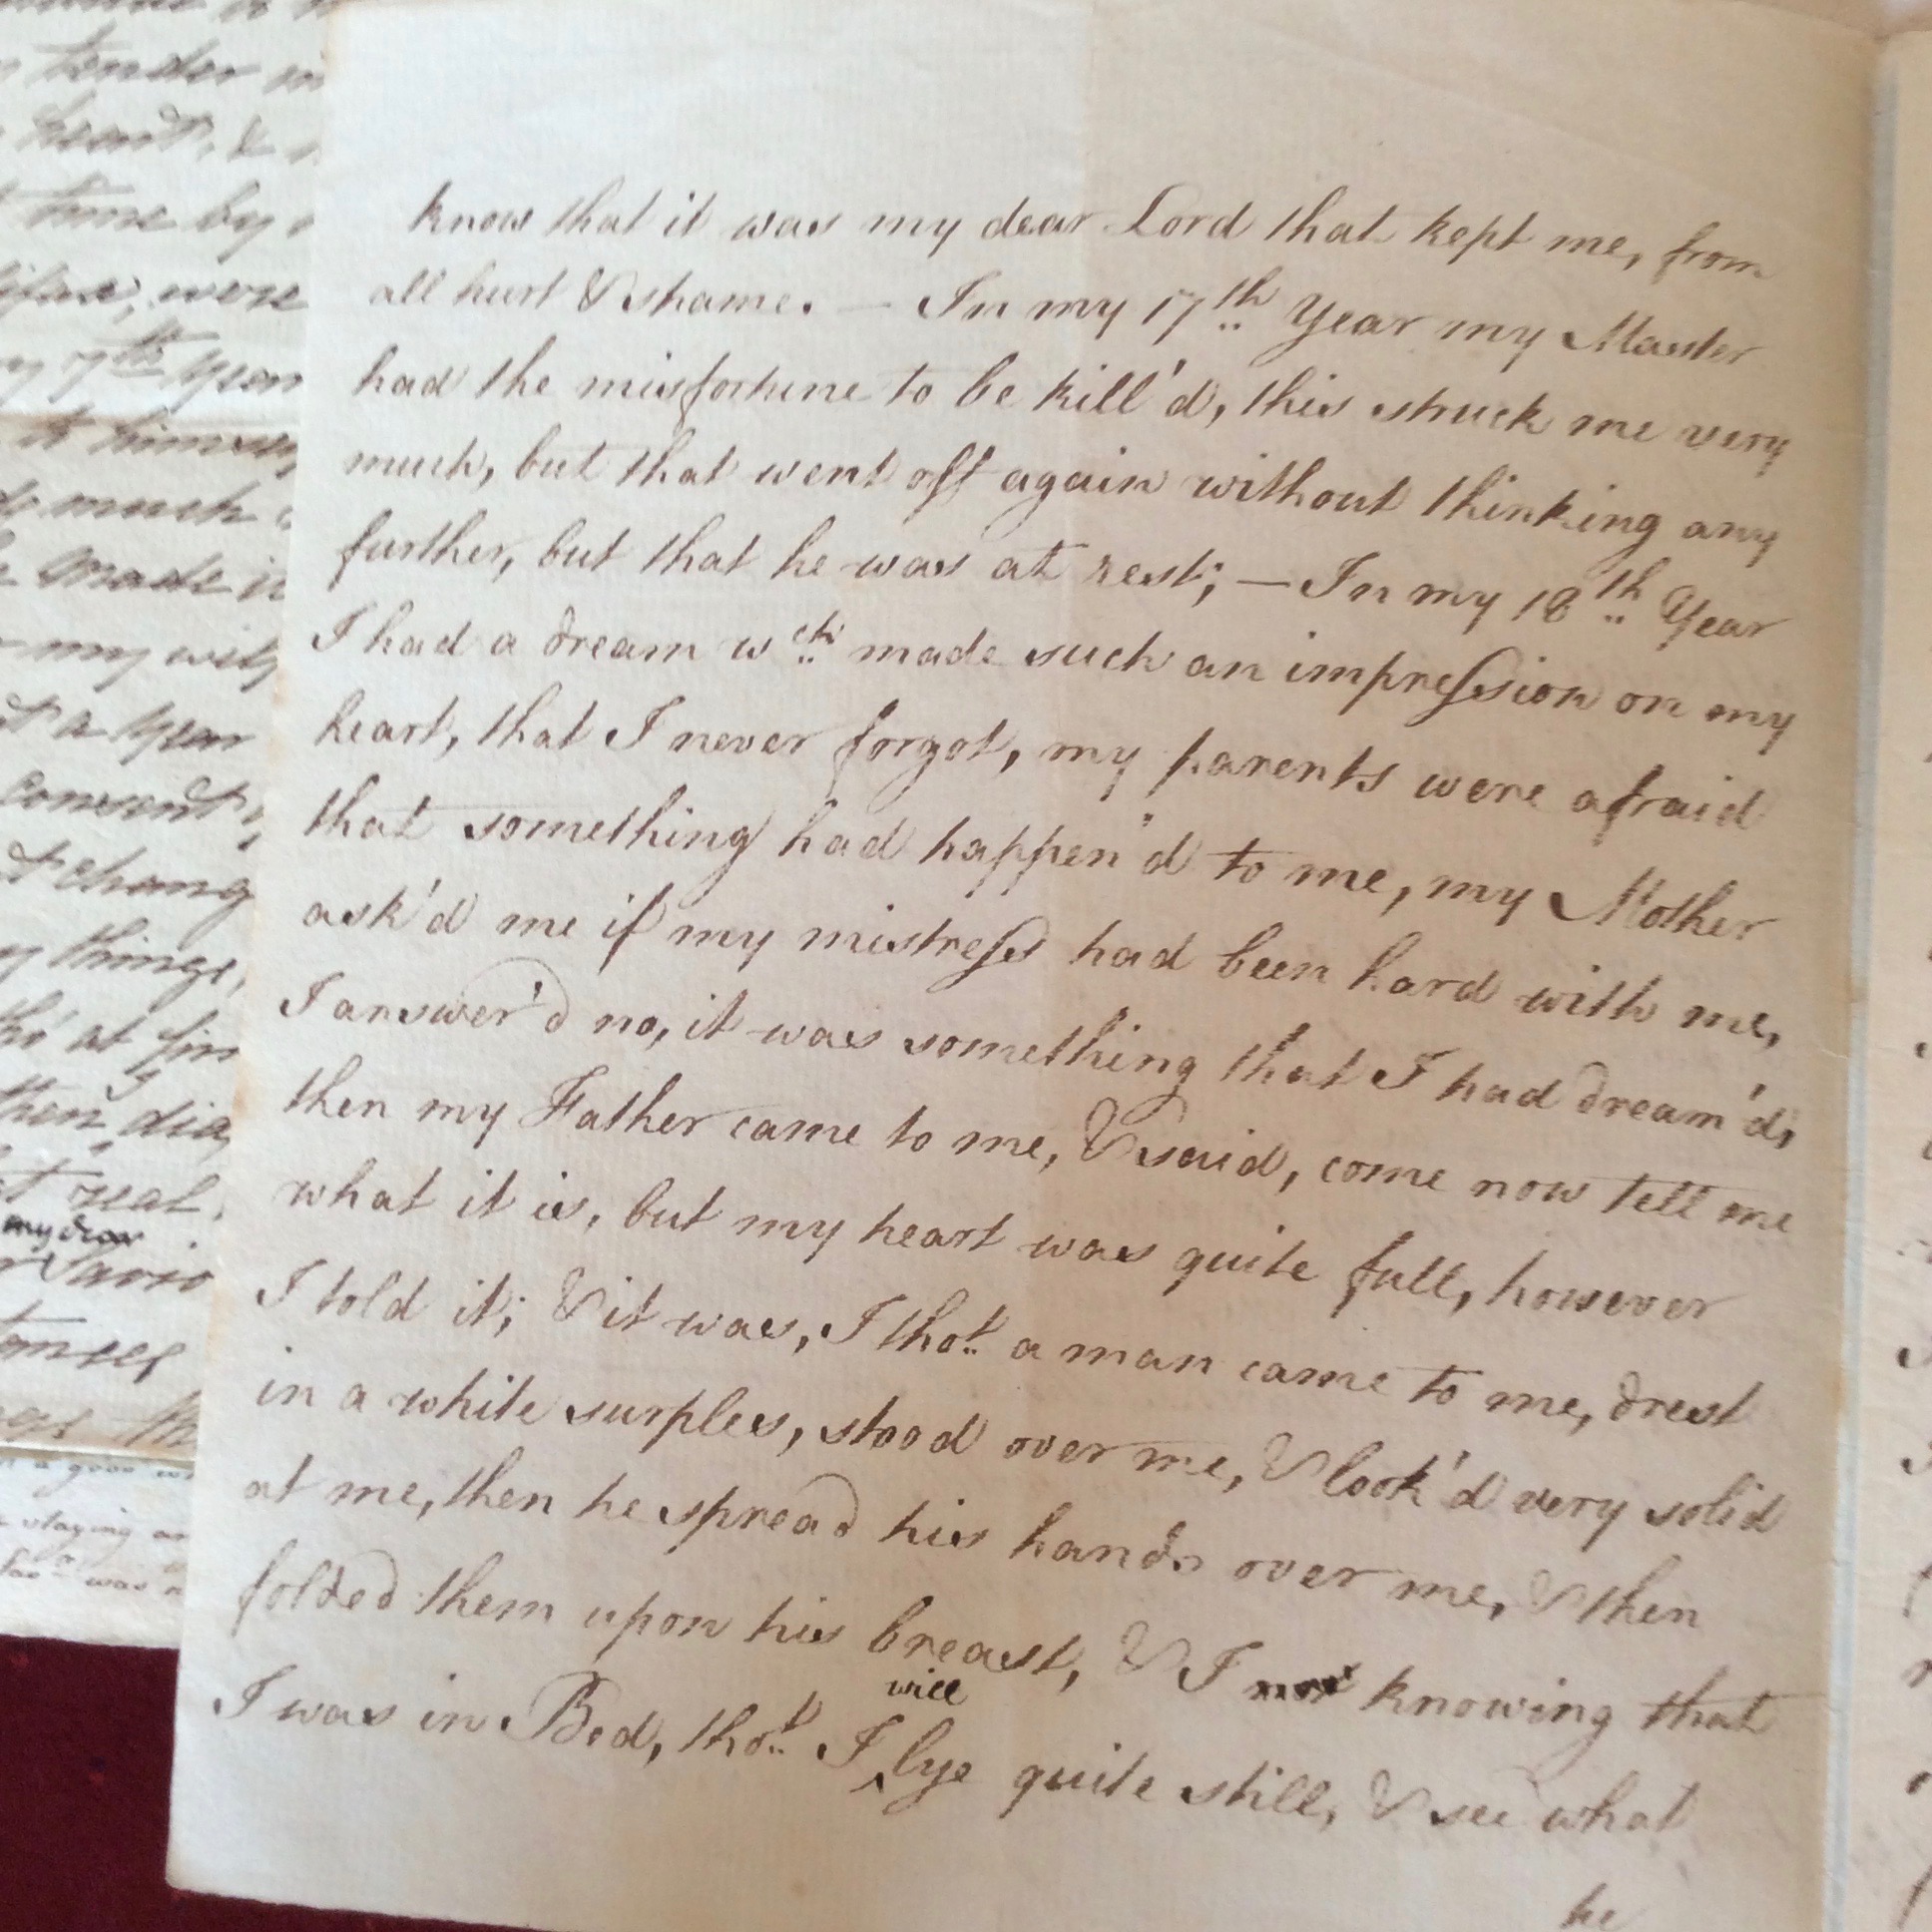 know that it was my dear Lord that kept me, from
all hurt & shame. — In my 17th Year my Master
had the misfortune to be kill'd, this struck me very
much, but that went off again without thinking any
further, but that he was at rest; — In my 18th Year
I had a dream wch made such an impression on my
heart, that I never forgot, my parents were afraid
that something had happen'd to me, my Mother
ask'd me if my mistress had been hard with me,
I answer'd no, it was something that I had dream'd,
then my Father came to me, & said, come now tell me
what it is, but my heart was quite full, however
I told it; & it was, I thot a man came to me, drest
in a white surples, stood over me, & look'd very solid
at me, then he spread his hands over me, & then
folded them upon his breast, & I knowing that
I was in Bed, thot I will lye quite still, & see what
he
tender
heart, &
time by
were
7th year
to himself
much
made
my
a year
consent
change
things,
at
then I
real.
my dear
staying
was